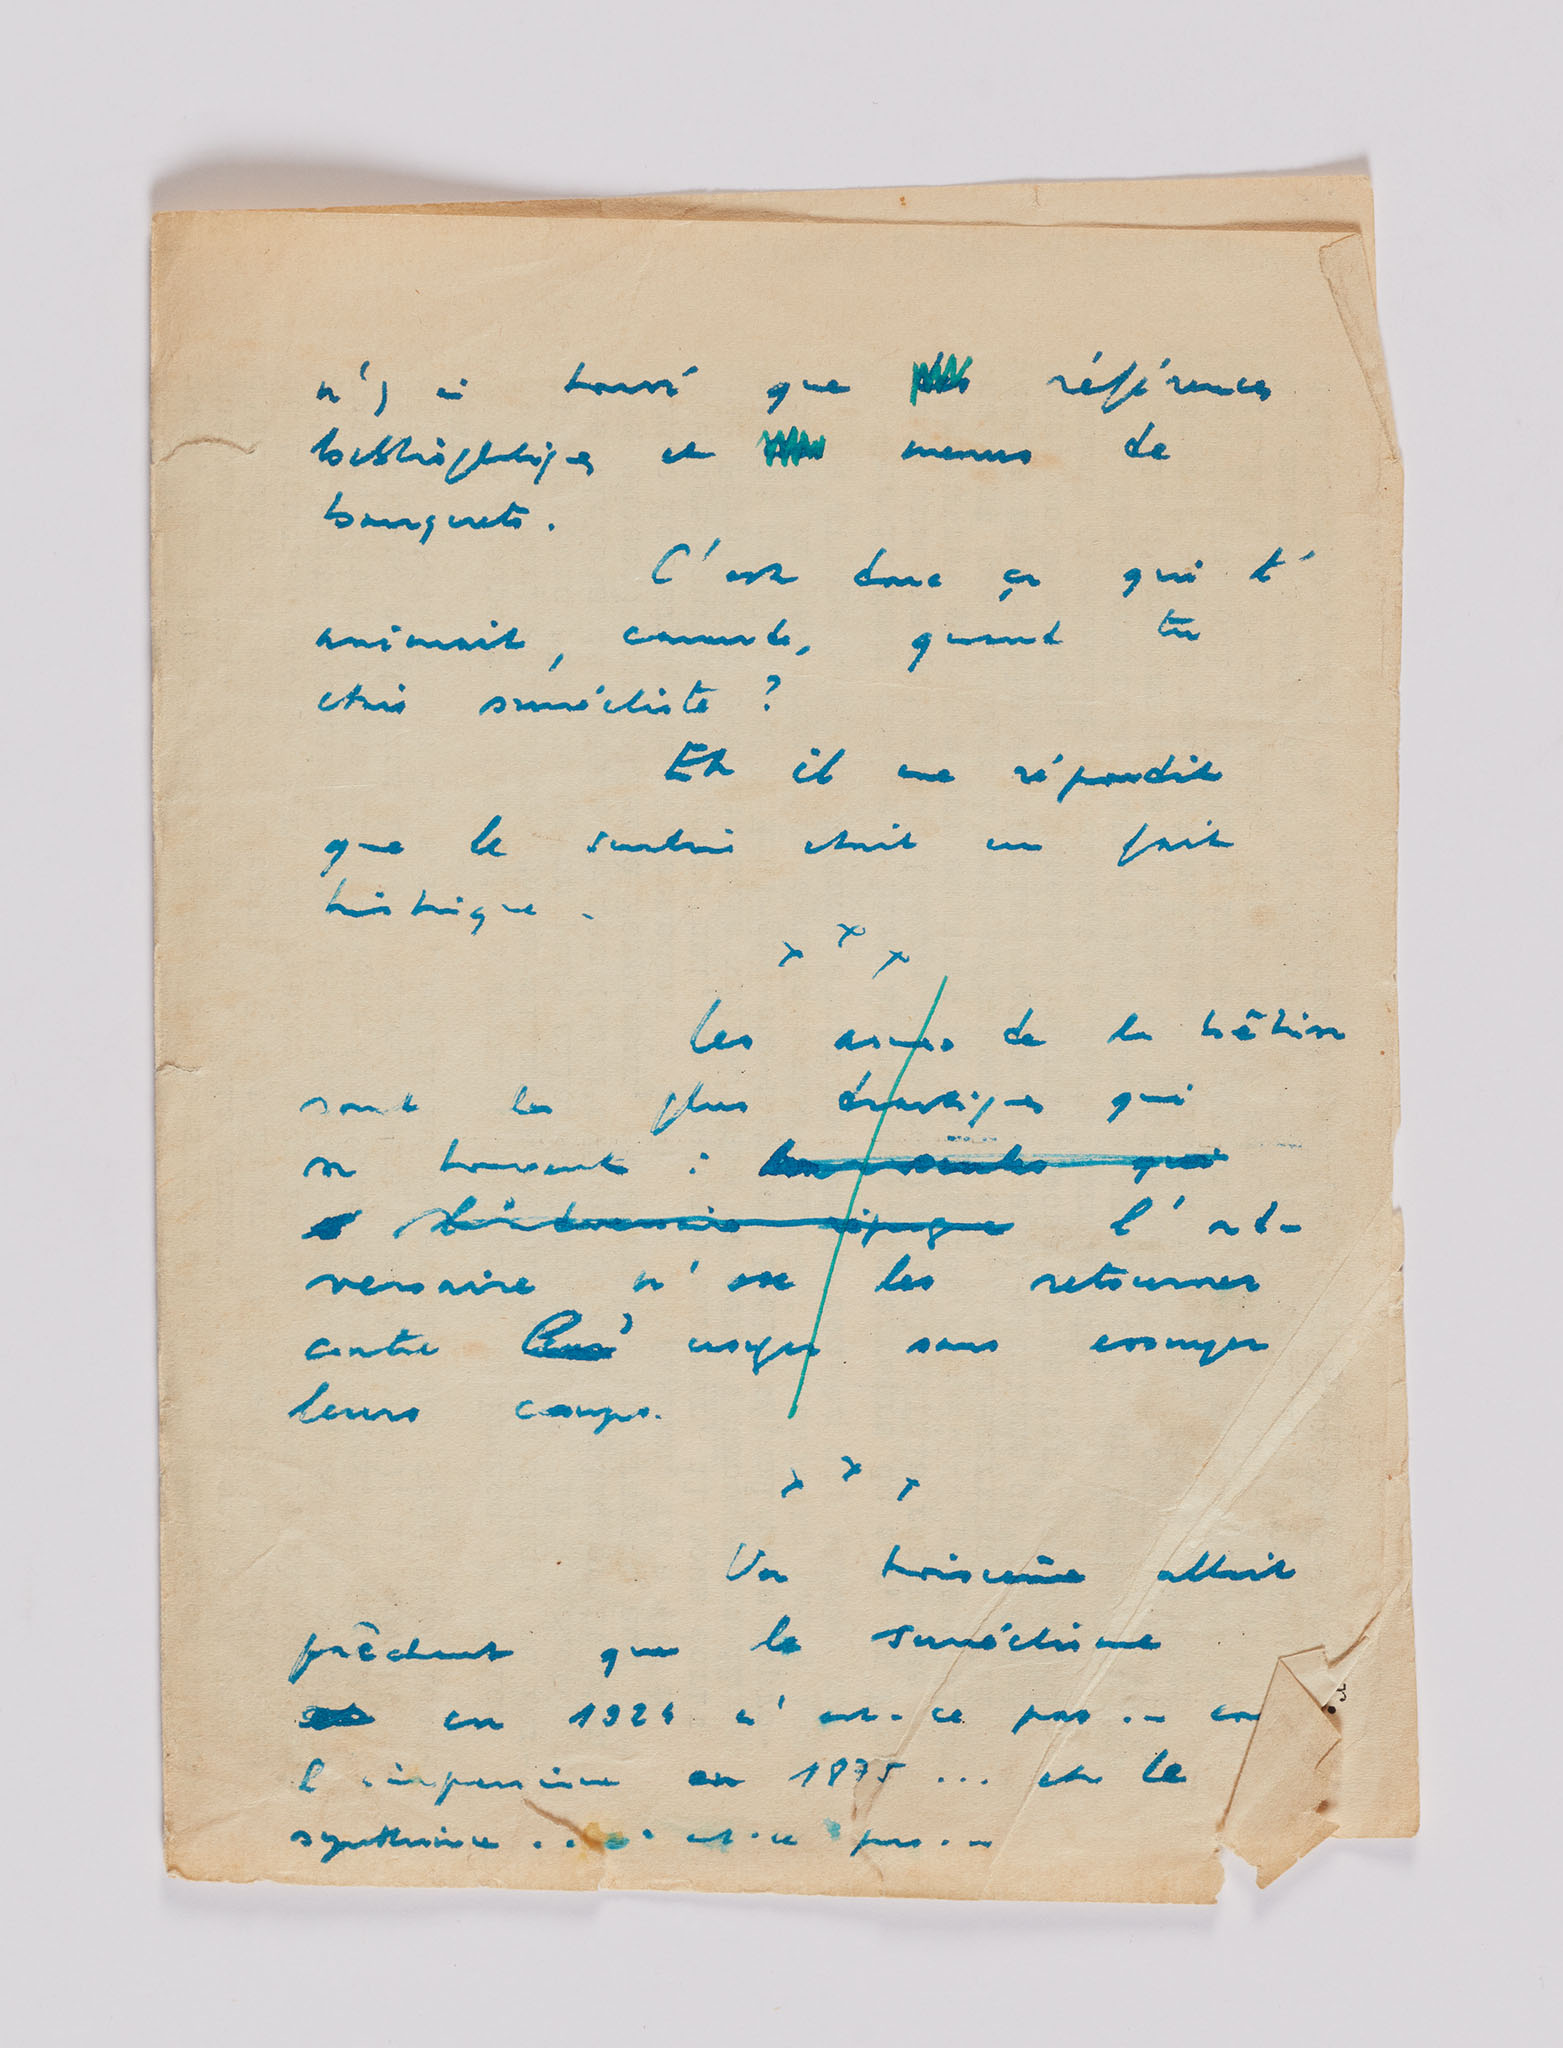 n'y ai trouvé que références
bibliographiques et menus de
banquets.
C'est donc ça qui t'
animait, camarade, quand tu
étais surréaliste ?
Et il me répondit
que le surréa était un fait
historique.
x x x
Les armes de la bêtise
sont les plus drastiques qui
se trouvent : les seules que
l'adversaire répugne l'ad-
versaire n'ose les retourner
contre usager sans essuyer
leurs coups.
x x x
Un troisième allait
prêchant que le surréalisme
en 1924 n'est-ce pas ...
l'impressionnisme en 1875 ... et le
symbolisme ... n'est-ce pas ...